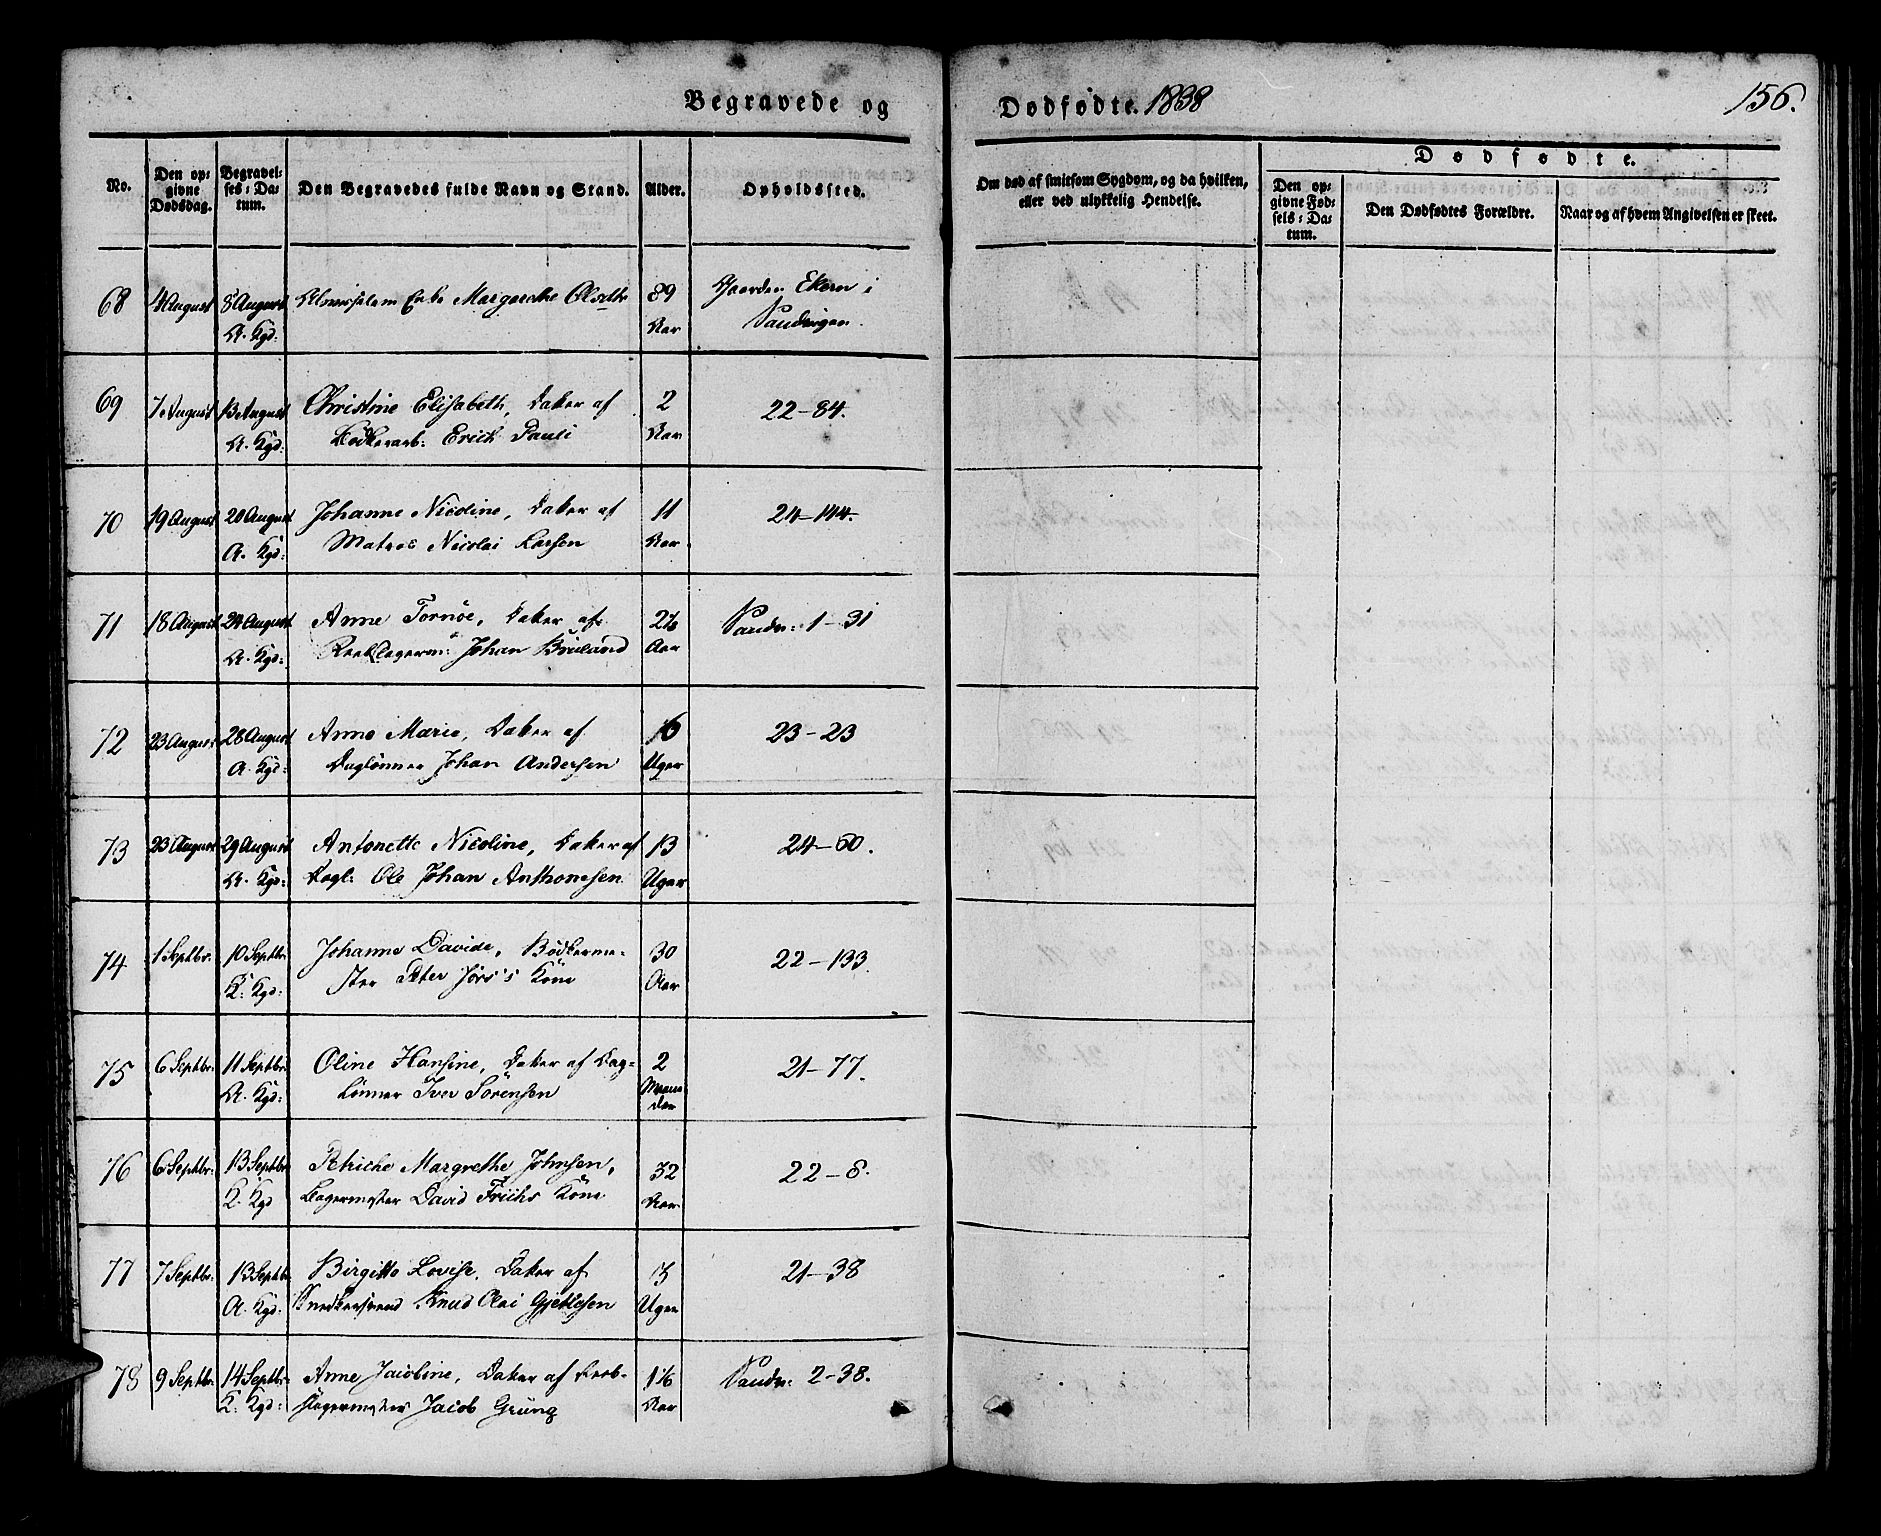 Begravede og
Dødfødte. 1838
156.
No.
Den opgivne Dødsdag.
Begravelses-Datum.
Den Begravedes fulde Navn og Stand.
Alder.
Opholdssted.
Om død af smitsom Sygdom, og da hvilken,
eller ved ulykkelig Hendelse.
Dødfødte.
Den opgivne Fødsels-Datum.
Den Dødfødtes Forældre.
Naar og af hvem Angivelsen er skeet.
68 4 August 8 August Enke Margarethe 89 Gaarden Ekern i
A. Kgd: Aar Sandvigen.
69 7 August 13 August Christine Elisabeth, Datter af 2 22-84.
A. Kgd: Bødkerarb: Erich Pauli Aar
70 19 August 20 August Johanne Nicoline, Datter af 11 24-144.
A. Kgd: Matros Nicolai Larsen Aar
71 18 August 24 August Anne Tornöe, Datter af 1-31
A. Kgd: Johan Aar
72 23 August 28 August Anne Marie, Datter af 16 23-23
A. Kgd: Daglönner Johan Andersen Uger
73 23 August 29 August Antonette Nicoline, Datter af 13 24-60.
A. Kgd: Dagl: Ole Johan Anthonesen Uger
74 1 Septbr: 10 Septbr: Johanne Davide, Bödkerme- 30 22-133.
K: Kgd: ster Peter Jörs's Kone Aar
75 6 Septbr: 11 Septbr: Oline Hansine, Datter af Dag- 2 21-77.
A. Kgd: lönner Iver Sörensen Maaneder
76 6 Septbr: 13 Septbr Petriche Margrethe Johnsen, 32 22-8.
K. Kgd Bagermester David Frichs Kone Aar
77 7 Septbr: 13 Septbr Birgitte Lovise, Datter af 21-38
A. Kgd: Snedkersvend Knud Olai Gjertsen Uger
78 9 Septbr: 14 Septbr: Anne Jacobine, Datter af Reb- Sandv: 2-38.
K: Kgd: slagermester Jacob Grung Aar